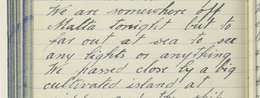 We are somewhere off
Malta tonight but to
far out at sea to see
any lights or anything
We passed close by a big
cultivated island, at